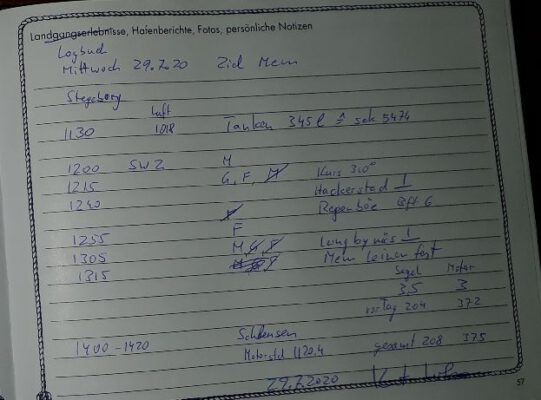 Landgangserlebnisse, Hafenberichte, Fotos, persönliche Notizen
Logbuch
Mittwoch 29.7.20 Ziel Mem
Stegeborg
Luft
1130 1018 Tanken 345 l ≙ sek 5474
1200 SW 2 M
1215 G, F, M Kurs 310°
1240 Häckerstad ⊥
F Regenböe Bft 6
1255 F
1305 M, G, F Långbynäs ⊥
1315 Mem Leinen fest
Segel Motor
3,5 3
Vortag 204 372
1400 - 1420 Schleusen gesamt 208 375
Motorstd 1120,4
29.7.2020
57